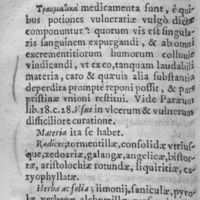 Τραυματικὰ medicamenta sunt, è quibus
potiones vulnerariæ vulgò dictæ
componuntur: quorum vis est singularis
sanguinem expurgandi, & ab omni
excrementitiorum humorum colluvie
vindicandi, ut ex eo, tanquam laudabili
materia, caro & quævis alia substantia
deperdita prompte reponi possit, & par
pristinæ unioni restitui. Vide Paræum
lib. 18. c. 28. Usus in ulcerum & vulnerum
difficiliore curatione.
Materia ita se habet.
Radices; tormentillæ, consolidæ
que, zedoariæ, galangæ, angelicæ,
aristolochiæ rotundæ, liquiritiæ,
yophyllatæ.
Herbæ ac folia; limonij, saniculæ,